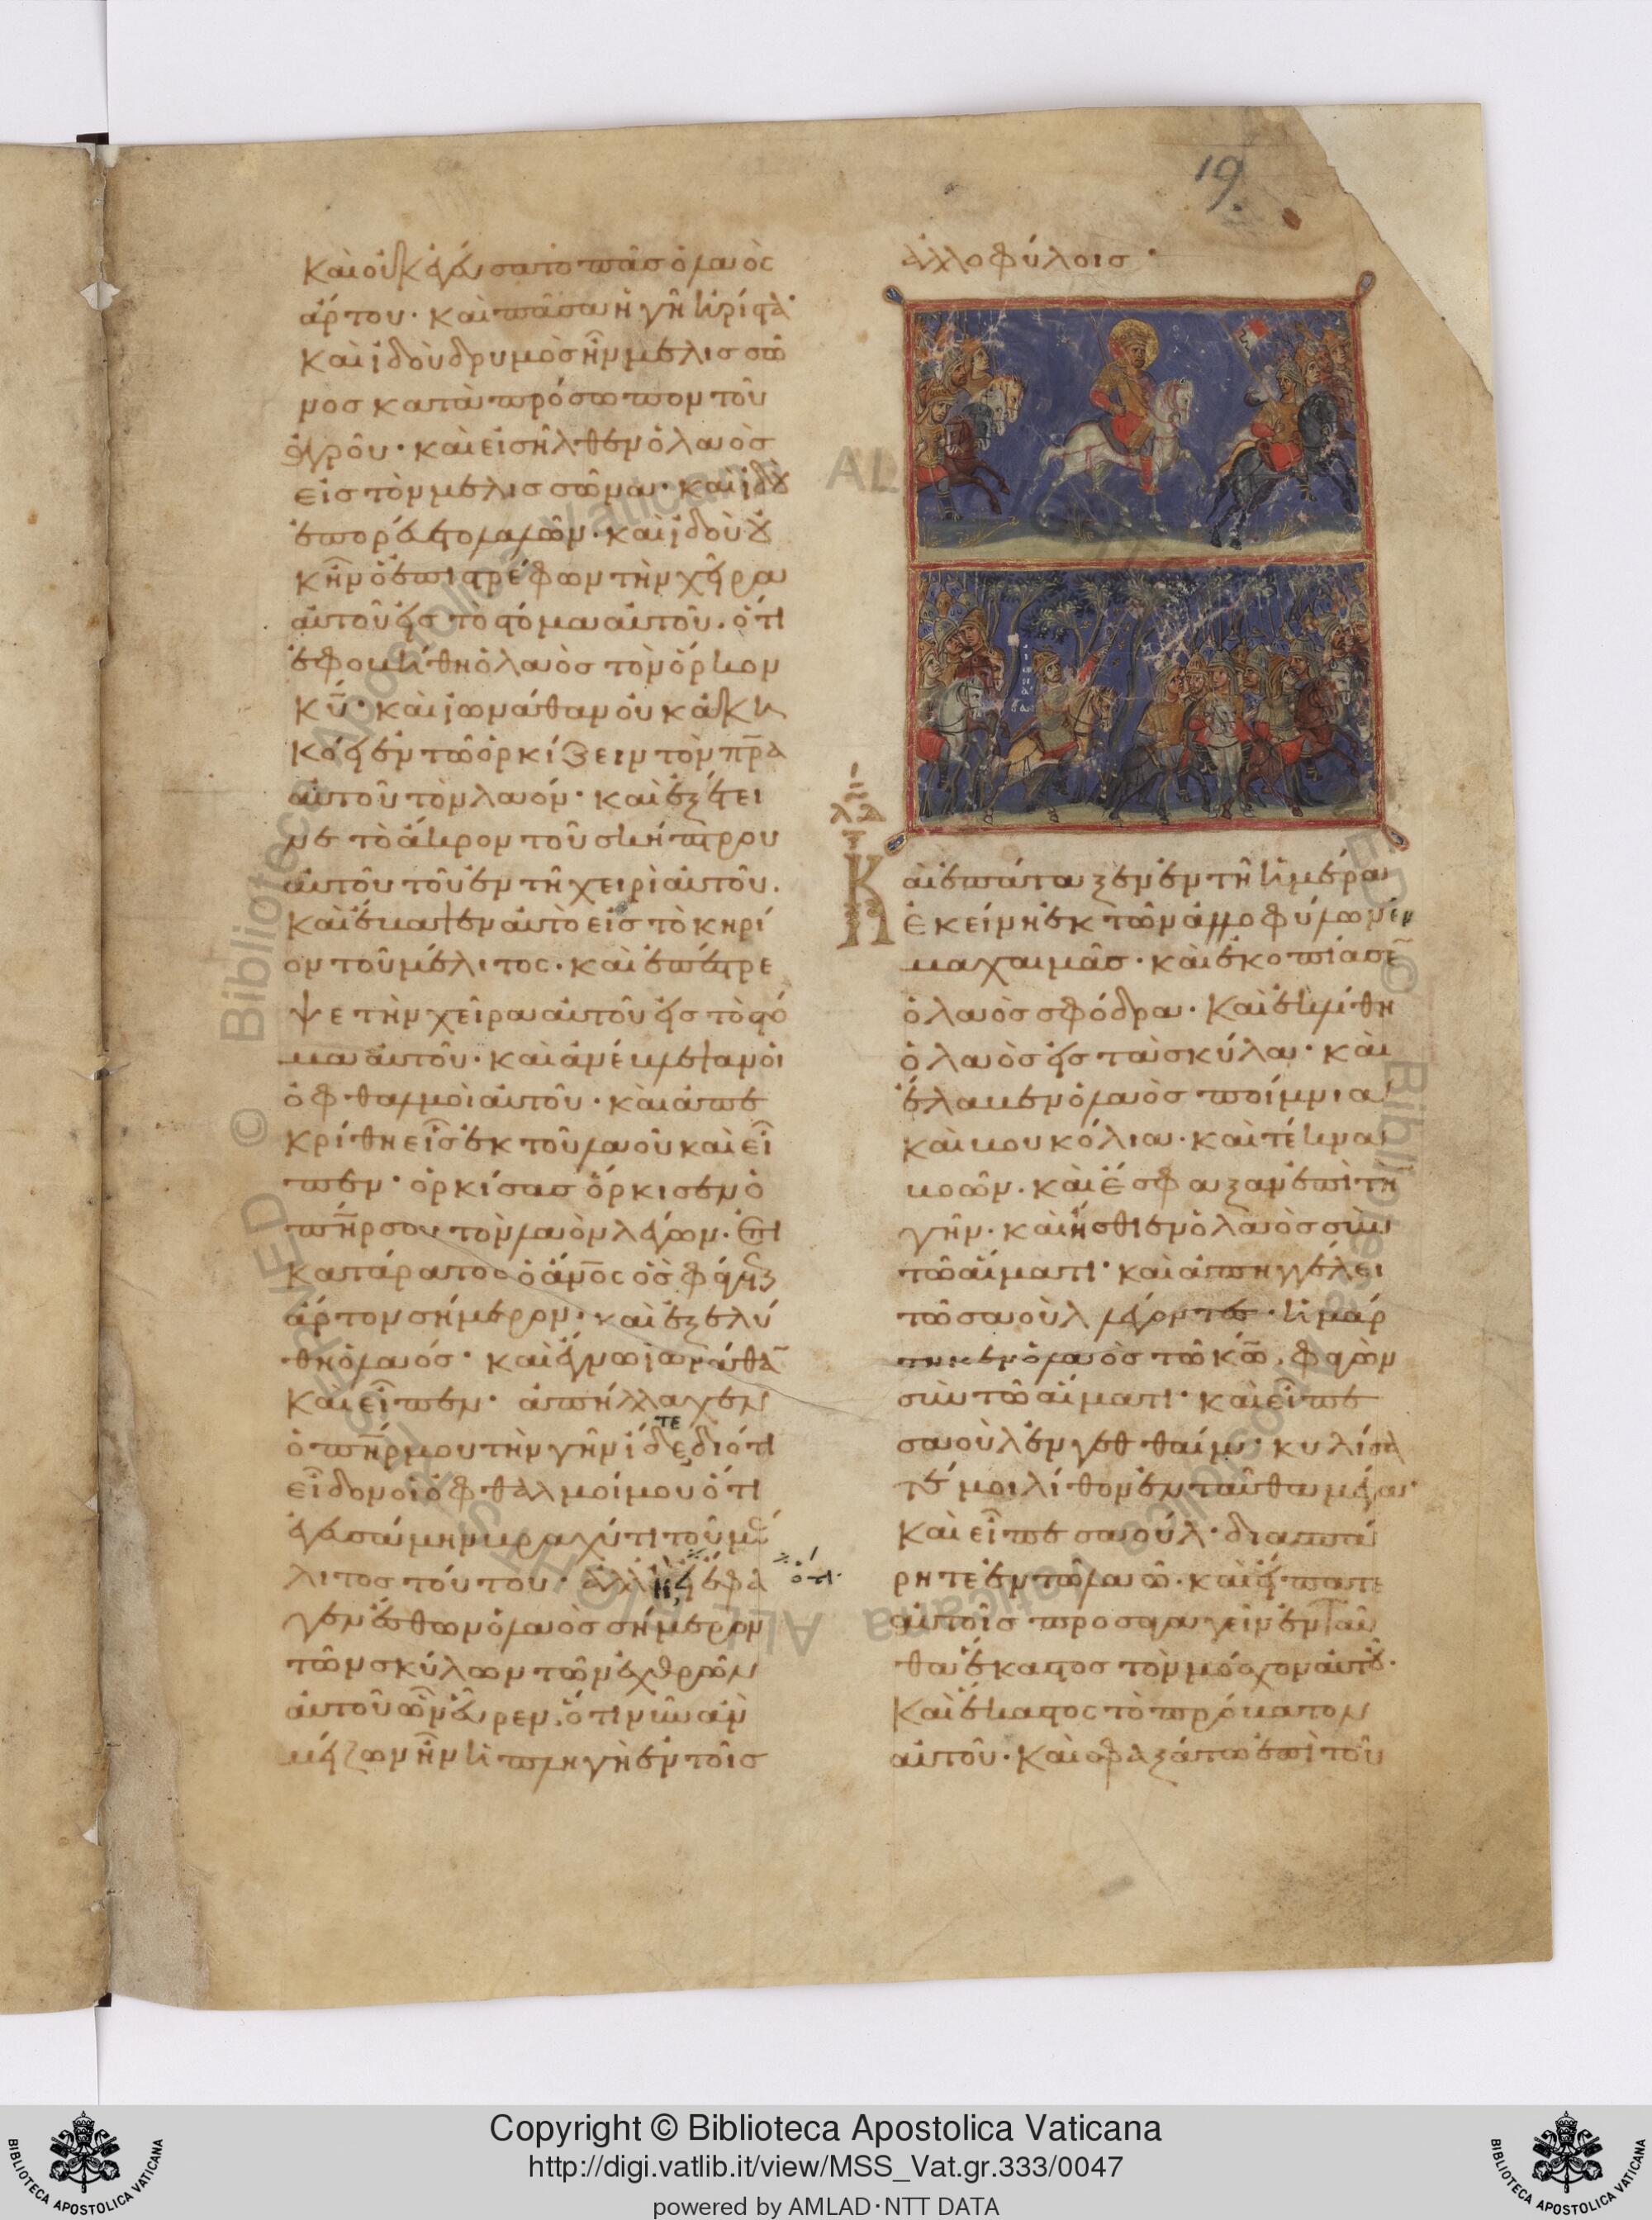 19
καὶ οὐκ ἐγεύσατο πᾶσ ὁ λαὸς
ἄρτου· καὶ πᾶσα ἡ γῆ ἠρίστα·
καὶ ἰδοὺ δρυμὸσ ἦν μελισσῶ
νοσ κατὰ πρόσωπον τοῦ
ἀγροῦ· καὶ εἰσῆλθεν ὁ λαὸσ
εἰσ τὸν μελισσῶνα· καὶ ἰδοὺ
ἐπορεύετο λαλῶν· καὶ ἰδοὺ οὐ
κ ἦν ὁ ἐπιστρέφων τὴν χεῖρα
αὐτοῦ εἰσ το στόμα αὐτοῦ· ὅτι
ἐφοβήθη ὁ λαὸσ τὸν ὅρκον
κ̅υ̅· καὶ ἰωνάθαν οὐκ ἀκη
κόει ἐν τῶ ὁρκίζειν τὸν π̅ρ̅α
αὐτοῦ τὸν λαόν· καὶ ἐξέτει
νε τὸ ἄκρον τοῦ σκήπτρου
αὐτοῦ τοῦ ἐν τῆ χειρὶ αὐτοῦ.
καὶ ἔβαψεν αὐτο εἰσ τὸ κηρί
ον τοῦ μέλιτος· καὶ ἐπέστρε
ψε τὴν χεῖρα αὐτοῦ εἰσ τὸ στό
μα αὐτοῦ· καὶ ἀνέβλεψαν οἱ
ὀφθαλμοὶ αὐτοῦ· καὶ ἀπε
κρίθη εἷσ ἐκ τοῦ λαοῦ καὶ εἶ
πεν· ὁρκίσασ ὅρκισεν ὁ
π̅η̅ρ σου τὸν λαὸν λέγων· Ἐπι
κατάρατος ὁ ἄν̅ος ὃσ φάγεται
ἄρτον σήμερον· καὶ ἐξελύ
θη ὁ λαός· καὶ ἔγνω ἰωνάθα̅
καὶ εἶπεν· ἀπήλλαχεν
ὁ π̅η̅ρ μου τὴν γῆν ἴδετε διότι
εἶδον οἱ ὀφθαλμοί μου ὅτι
ἐγευσάμην βραχύ τι τοῦ μέ
λιτοσ τούτου· ἀλλ' ἢ ὅτι ἔφα
γεν ἔσθων ὁ λαὸσ σήμερον
τῶν σκύλων τῶν ἐχθρῶν
αὐτοῦ ὧν εὗρεν. ὅτι νῦν ἂν
μείζων ἦν ἡ πληγὴ ἐν τοῖσ
ἀλλοφύλοισ·
καὶ ἐπάταξεν ἐν τῆ ἡμέρα
ἐκείνη ἐκ τῶν ἀλλοφύλων ἐν
μαχαιμᾶσ· καὶ ἐκοπίασε̅
ὁ λαὸσ σφόδρα· καὶ ἐκλίθη
ὁ λαὸσ εἰσ τὰ σκύλα· καὶ
ἔλαβεν ὁ λαὸσ ποίμνια
καὶ βουκόλια· καὶ τέκνα
βοῶν· καὶ ἔσφαξαν ἐπὶ τὴ
γῆν· καὶ ἤσθιεν ὁ λαὸσ σὺν
τῶ αἵματι· καὶ ἀπηγγέλει
τῶ σαοὺλ λέγοντεσ· ἡμάρ
τηκεν ὁ λαὸσ τῶ κ̅ω̅, φαγὼν
σὺν τῶ αἵματι· καὶ εἶπε
σαοὺλ ἐν γεθθαίμ· κυλίσα
τέ μοι λίθον ἐνταῦθα μέγαν·
καὶ εἶπε σαούλ· διασπά
ρητε ἐν τῶ λαῶ· καὶ εἴπατε
αὐτοῖσ προσαγαγεῖν ἐνταῦ
θα ἕκαστοσ τὸν μόσχον αὐτοῦ·
καὶ ἕκαστος τὸ πρόβατον
αὐτοῦ· καὶ σφαξάτω ἐπὶ τοῦ
Copyright © Biblioteca Apostolica Vaticana
http://digi.vatlib.it/view/MSS_Vat.gr.333/0047
powered by AMLAD·NTT DATA
BIBLIOTECA APOSTOLICA VATICANA
BIBLIOTECA APOSTOLICA VATICANA